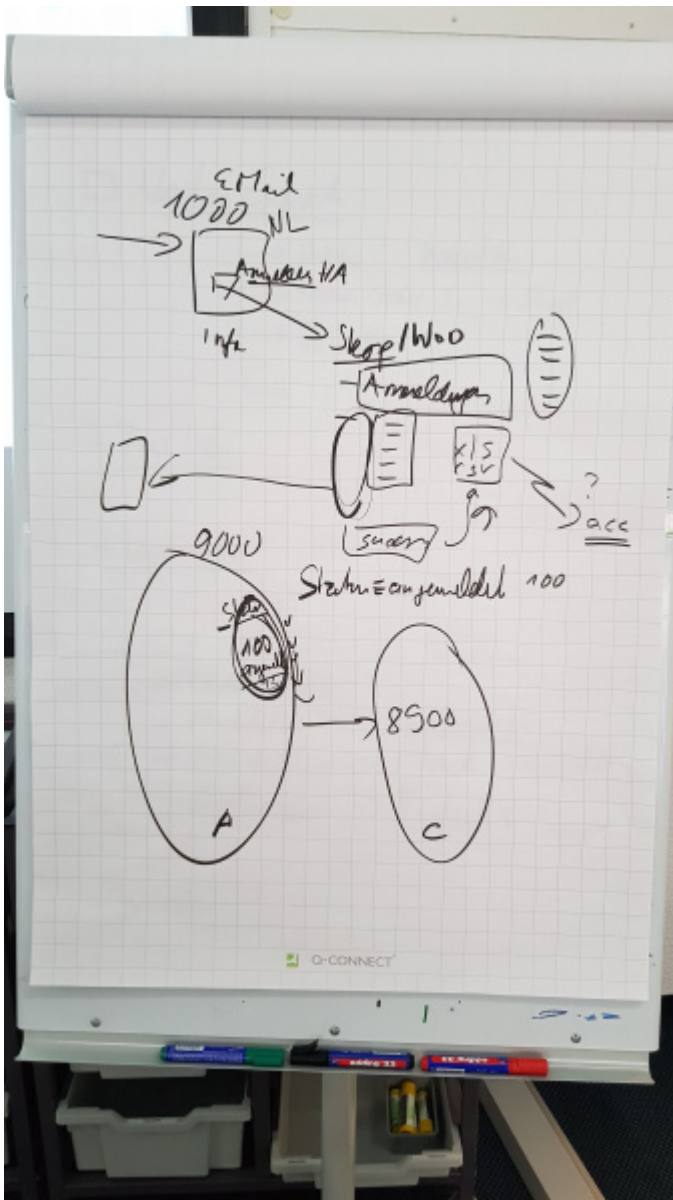 EMail
1000 NL
Anmelden HA
Info
/WOO
Anmeldungen
xls
csv
?
acc
9000
Status = angemeldet 100
100
8900
A
C
Q-CONNECT